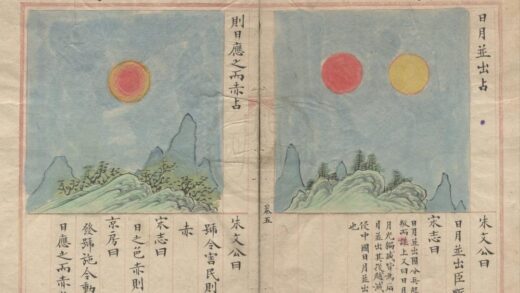 日月並出占
朱文公曰
日月並出臣
宋志曰
日月並出國分兵起
上又曰日月
月並出其
侵中國日月並出
也
卷五
則日應之而赤占
朱文公曰
號令害民則
赤
宋志曰
日之色赤則
京房曰
發號施令動
日應之而赤